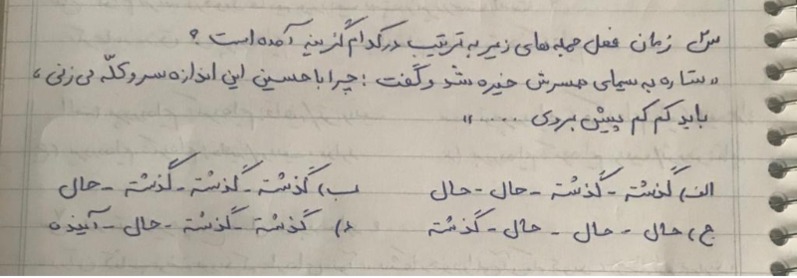 س) زمان فعل جمله های زیر به ترتیب در کدام گزینه آمده است ؟
« ستاره به سیمای همسرش خیره شد و گفت : چرا با حسین این اندازه سر و کلّه می زنی ،
باید کم کم پیش بروی ..... »
الف) گذشته - گذشته - حال - حال ب) گذشته - گذشته - گذشته - حال
ج) حال - حال - حال - گذشته د) گذشته - گذشته - حال - آینده